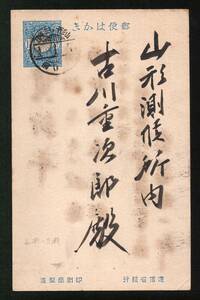 郵便はがき
山形測候所内
古川重次郎殿
逓信省発行
印刷局製造